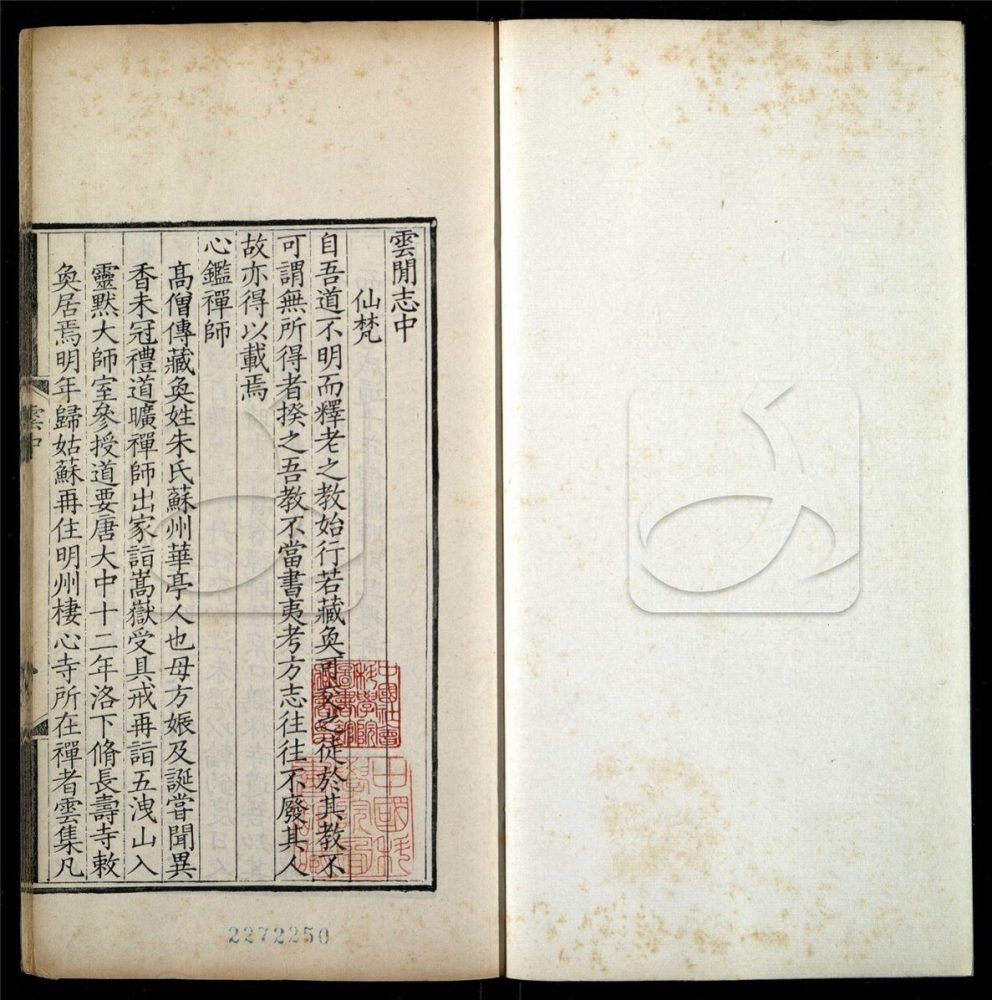 雲間志中
仙梵
自吾道不明而釋老之教始行若藏奐可文之徒於其教不
可謂無所得者揆之吾教不當書夷考方志往往不廢其人
故亦得以載焉
心鑑禪師
高僧傳藏奐姓朱氏蘇州華亭人也母方娠及誕嘗聞異
香未冠禮道曠禪師出家詣嵩嶽受具戒再詣五洩山入
靈黙大師室叅授道要唐大中十二年洛下脩長壽寺敕
奐居焉明年歸姑蘇再住明州棲心寺所在禪者雲集凡
雲中
中國社會科學院圖書館藏書
2272250